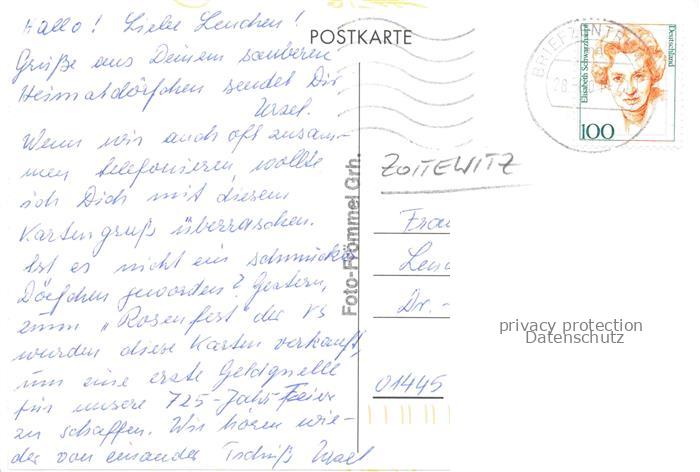 Hallo! Liebe Lenchen!
Grüße aus Deinem sauberen
Heimatdörfchen sendet Dir
Ursel.
Wenn wir auch oft zusam-
men telefonieren, wollte
ich Dich mit diesem
Kartengruß überraschen.
Ist es nicht ein schmuckes
Dörfchen geworden? Gestern,
zum „Rosenfest" der VS
wurden diese Karten verkauft,
um eine erste Geldquelle
für unsere 725-Jahr-Feier
zu schaffen. Wir hören wie-
der von einander Tschüß Ursel
POSTKARTE
Foto-Frömmel Grh.
BRIEFZENTRUM
Elisabeth Schwarzhaupt
Deutschland
100
ZOTTEWITZ
Frau
Lenc
Dr. -
01445
privacy protection
Datenschutz